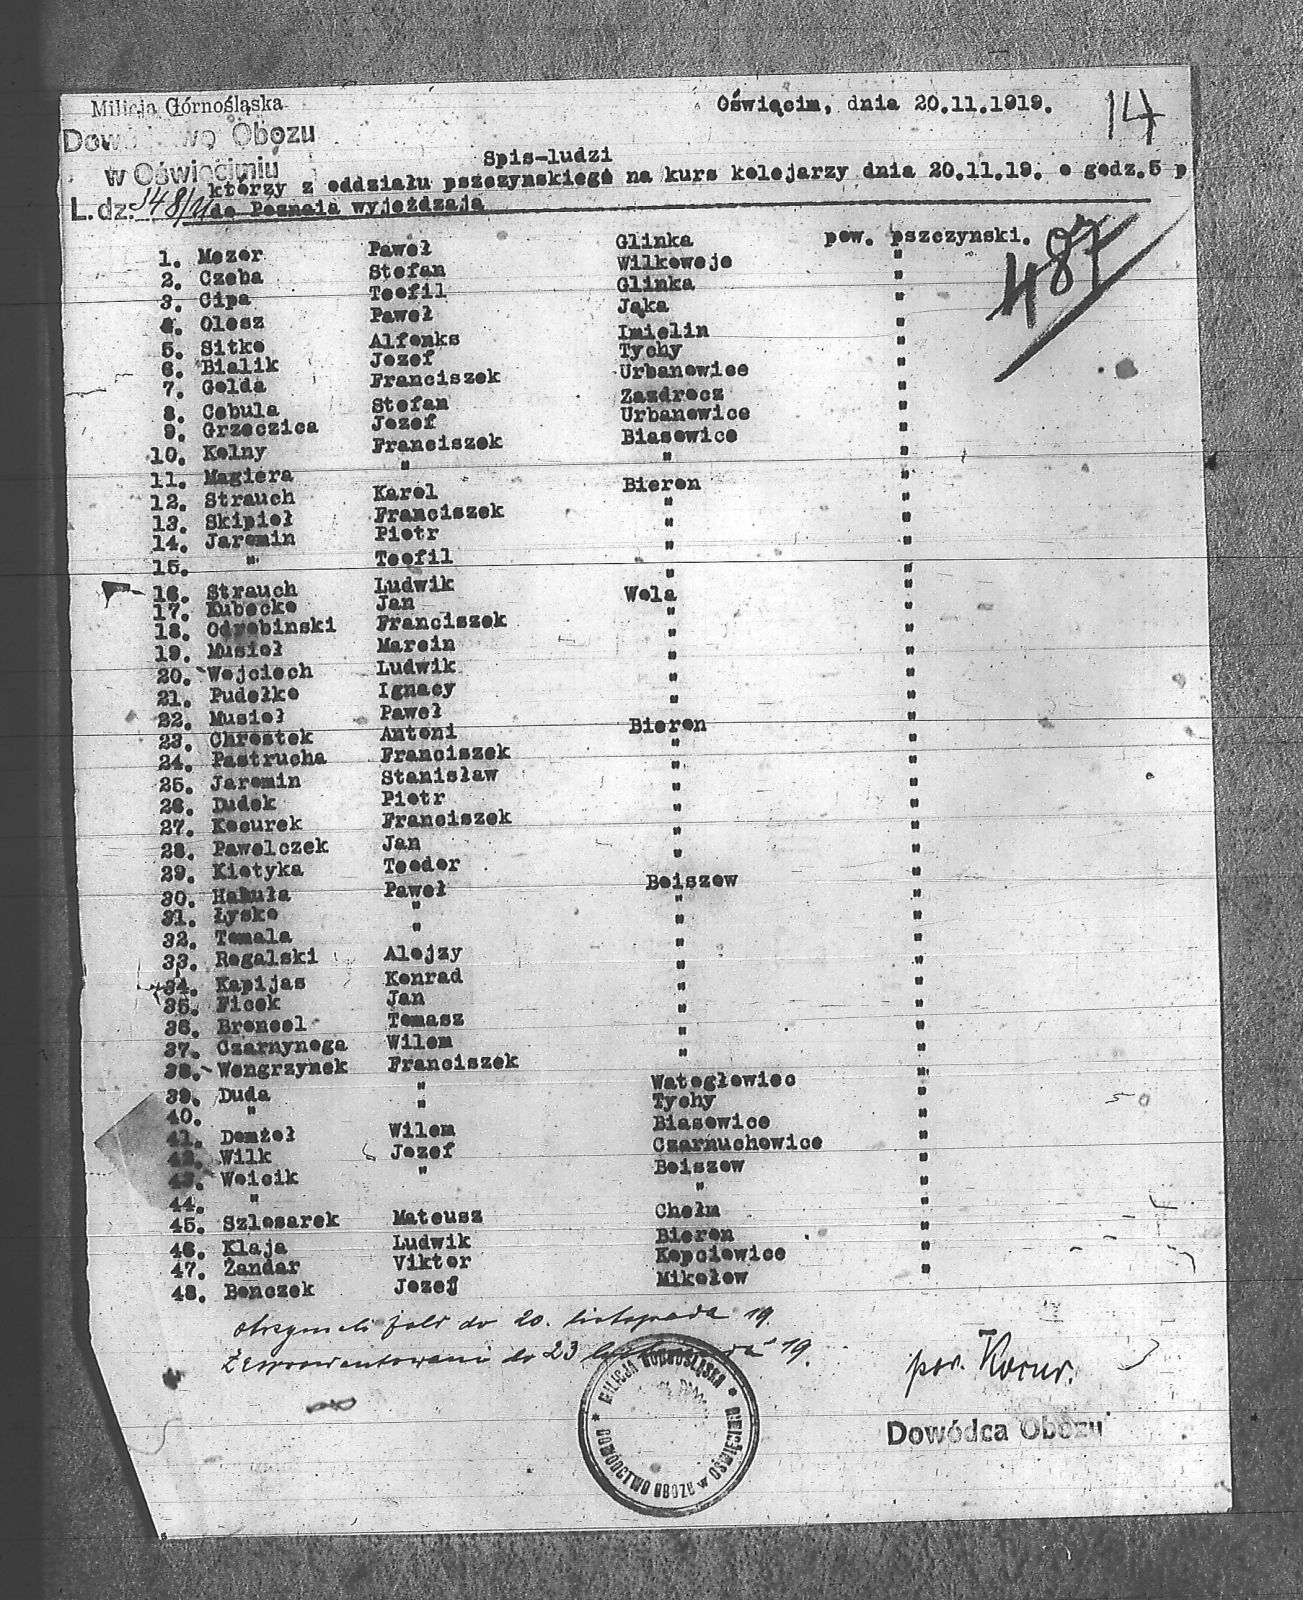 Milicja Górnośląska
Oświęcim, dnia 20.11.1919.
14
Dowództwo Obozu
w Oświęcimiu
Spis-ludzi
którzy z oddziału pszczynskiego na kurs kolejarzy dnia 20.11.19. o godz.5 p
L. dz. 148/ do Poznaia wyjeżdzają
487
1. Mozor Paweł Glinka pow. pszczynski.
2. Czoba Stefan Wilkowoje "
3. Cipa Teofil Glinka "
4. Olesz Paweł Jąka "
5. Sitko Alfonks Imielin "
6. Bialik Jozef Tychy "
7. Golda Franciszek Urbanowice "
8. Cebula Stefan Zazdrocz "
9. Grzeczica Jozef Urbanowice "
10. Kolny Franciszek Biasowice "
11. Magiera " " "
12. Strauch Karol Bieron "
13. Skipioł Franciszek " "
14. Jaromin Piotr " "
15. " Teofil " "
16. Strauch Ludwik " "
17. Kubecko Jan Wola "
18. Odrobinski Franciszek " "
19. Musioł Marcin " "
20. Wojciech Ludwik " "
21. Pudełko Ignacy " "
22. Musioł Paweł " "
23. Chrostek Antoni Bieron "
24. Pastrucha Franciszek " "
25. Jaromin Stanisław " "
26. Dudek Piotr " "
27. Kocurek Franciszek " "
28. Pawelczek Jan " "
29. Kietyka Teodor " "
30. Hahuła Paweł Boiszow "
31. Łysko " " "
32. Tomala " " "
33. Rogalski Alojzy " "
34. Kapijas Konrad " "
35. Ficek Jan " "
36. Broncel Tomasz " "
37. Czarnynoga Wilem " "
38. Wengrzynek Franciszek " "
39. Duda " Watogłowiec "
40. " " Tychy "
41. Domżoł Wilem Biasowice "
42. Wilk Jozef Czarnuchowice "
43. Woicik " Boiszow "
44. " " "
45. Szlosarek Mateusz Chełm "
46. Klaja Ludwik Bieron "
47. Żandar Viktor Kopciowice "
48. Bonczek Jozef Mikołow "
otrzymali żołd do 20. listopada 19.
Zaprowiantowani do 23 listopada 19.
por. Kocur.
Dowódca Obozu
* MILICJA GÓRNOŚLĄSKA * DOWÓDCTWO OBOZU w OŚWIĘCIMIU